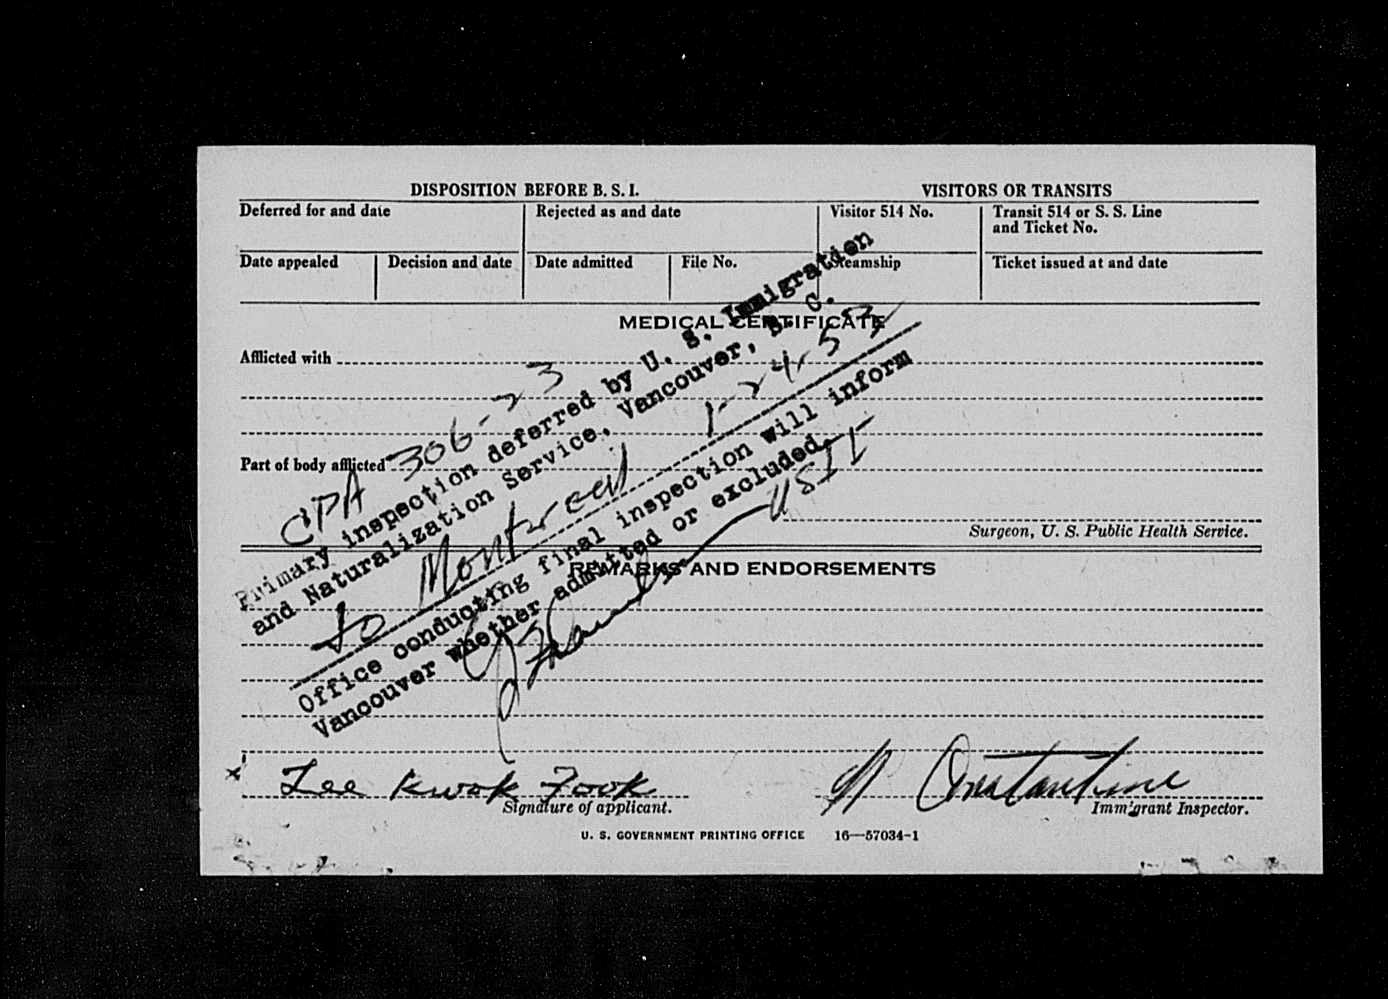 DISPOSITION BEFORE B. S. I.
VISITORS OR TRANSITS
Deferred for and date
Rejected as and date
Visitor 514 No.
Transit 514 or S. S. Line
and Ticket No.
Date appealed
Decision and date
Date admitted
File No.
Steamship
Ticket issued at and date
MEDICAL CERTIFICATE
Afflicted with
Part of body afflicted
CPA 306-23
Primary inspection deferred by U. S. Immigration
and Naturalization Service, Vancouver, B. C.
to Montreal 1-24-53
Office conducting final inspection will inform
Vancouver whether admitted or excluded.
USII
Surgeon, U. S. Public Health Service.
REMARKS AND ENDORSEMENTS
x Lee Kwok Fook
Signature of applicant.
N Constantine
Immigrant Inspector.
U. S. GOVERNMENT PRINTING OFFICE 16—57034-1